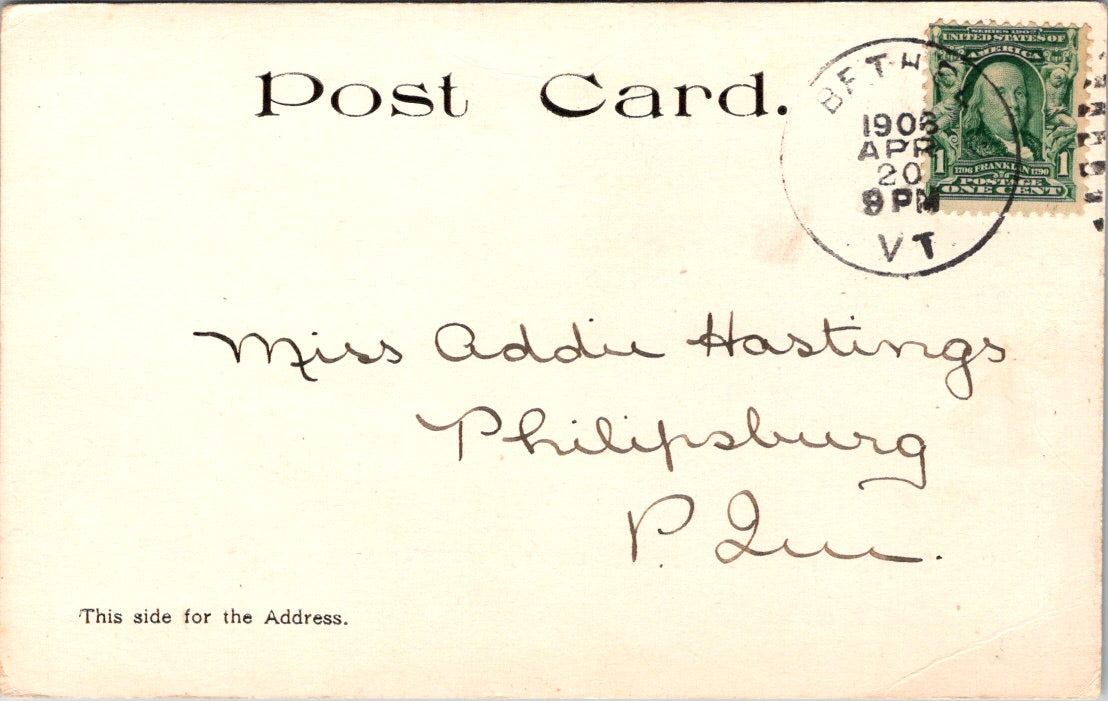 Post Card.
BETHEL
1906
APR
20
9 PM
VT
SERIES 1902
UNITED STATES OF
AMERICA
1706 FRANKLIN 1790
POSTAGE
1 1
ONE CENT
Miss Addie Hastings
Philipsburg
P. Que.
This side for the Address.